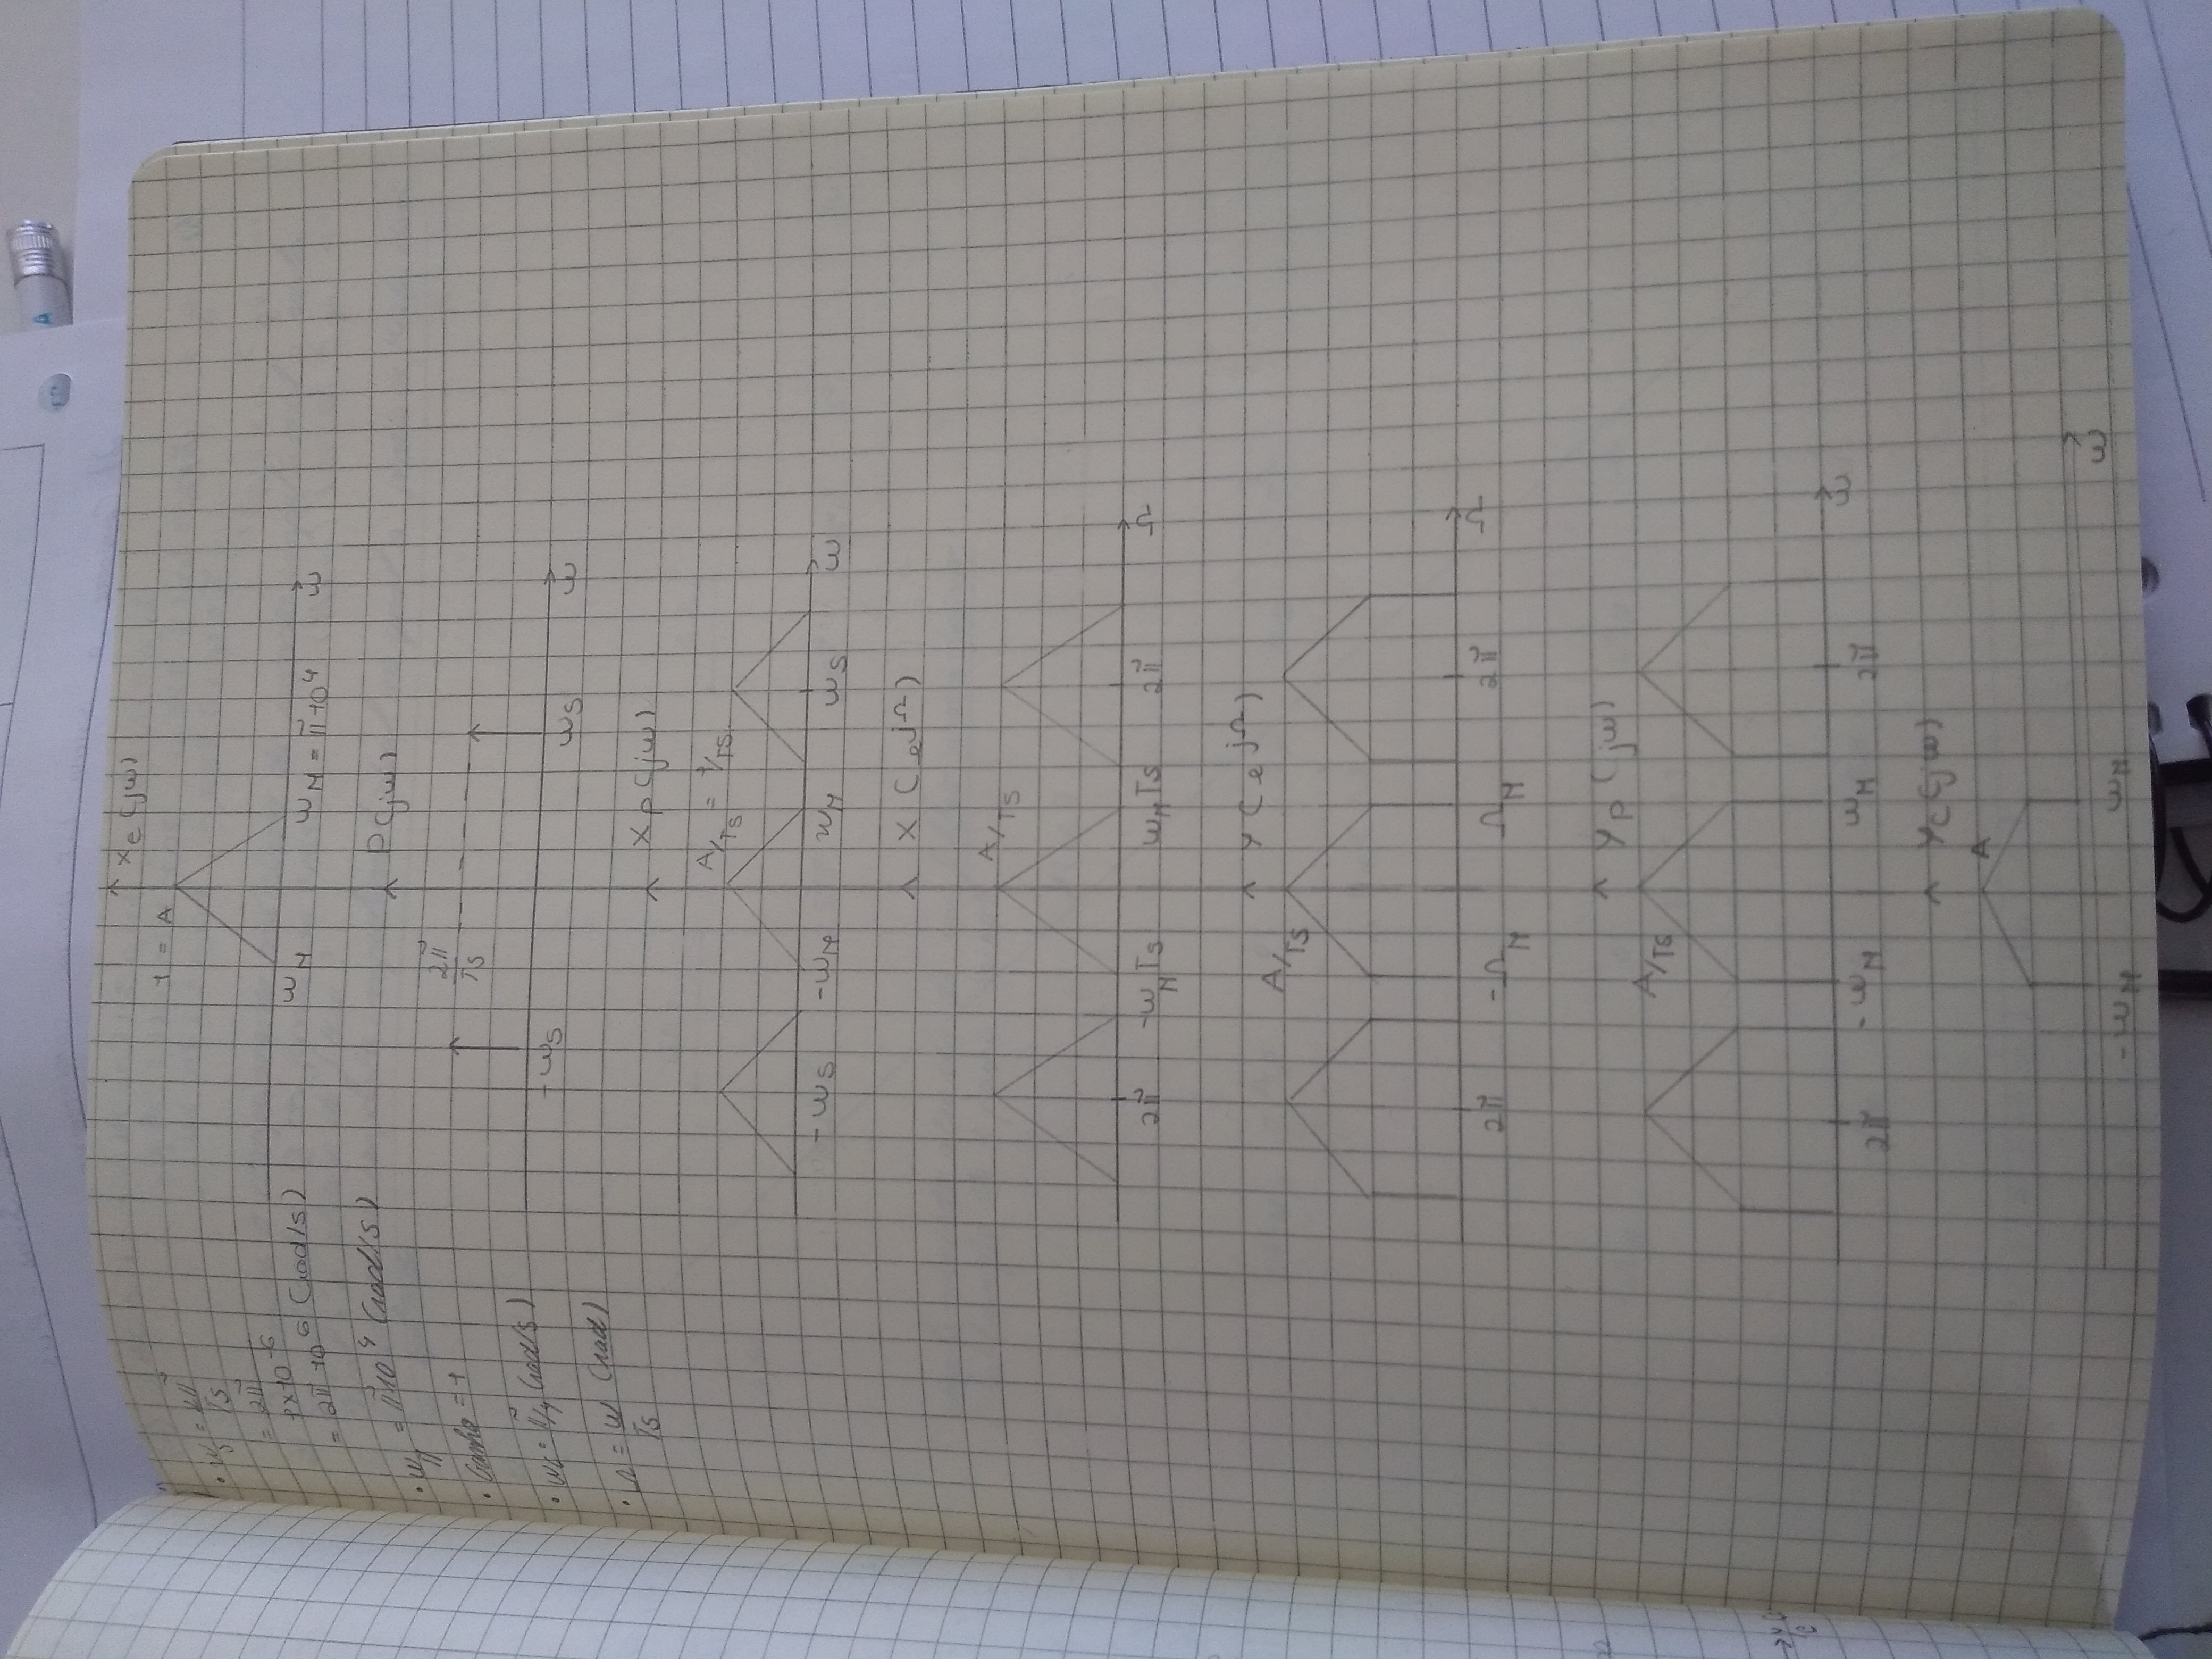 • ωs = 2π
Ts
= 2π
1×10^-6
= 2π·10^6 (rad/s)
• ωM = π·10^4 (rad/s)
• Ganho = 1
• ωc = π/4 (rad/s)
• Ω = ω (rad)
Ts
Xc(jω)
1 = A
ωM
ωM = π·10^4
ω
P(jω)
2π
Ts
-ωs
ωs
ω
Xp(jω)
A/Ts = 1/Ts
-ωs
-ωM
ωM
ωs
ω
X(e^jΩ)
A/Ts
2π
-ωM Ts
ωM Ts
2π
Ω
Y(e^jΩ)
A/Ts
2π
-ΩM
ΩM
2π
Ω
Yp(jω)
A/Ts
2π
-ωM
ωM
2π
ω
Yc(jω)
A
-ωM
ωM
ω